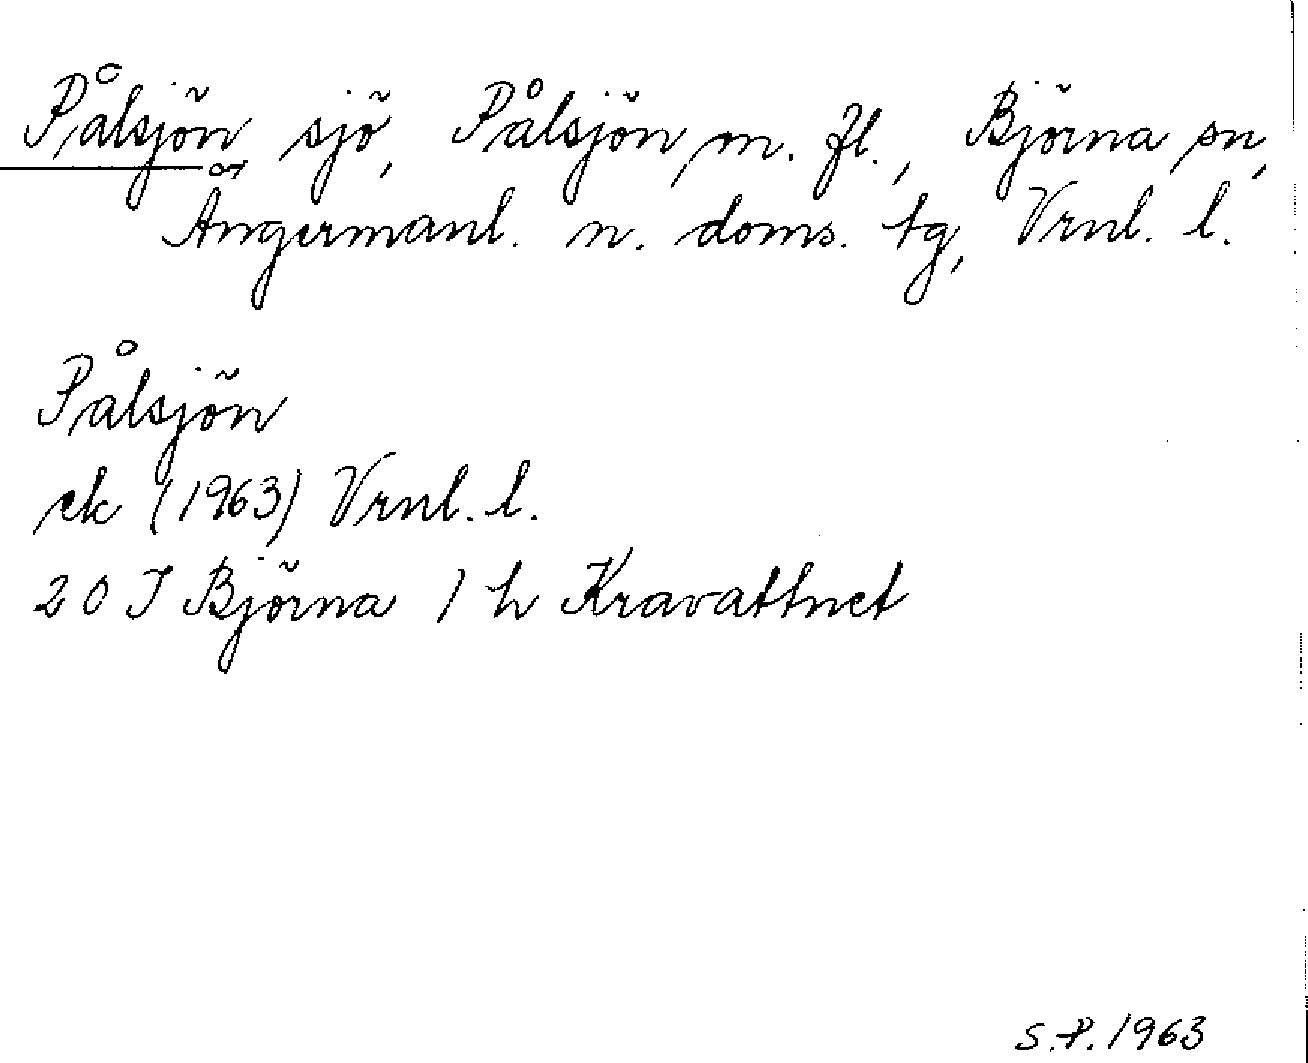 Pålsjön sjö, Pålsjön m. fl., Björna sn,
Ångermanl. n. doms. tg, Vrnl. l.
Pålsjön
ek (1963) Vrnl. l.
20 J Björna 1 h Kravattnet
S.P. 1963